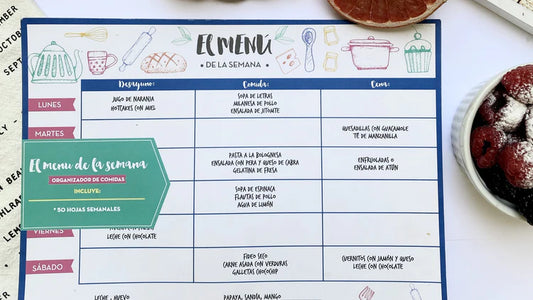 EL MENÚ
• DE LA SEMANA •
Desayuno:
Comida:
Cena:
LUNES
JUGO DE NARANJA
HOTCAKES CON MIEL
SOPA DE LETRAS
MILANESA DE POLLO
ENSALADA DE JITOMATE
MARTES
QUESADILLAS CON GUACAMOLE
TÉ DE MANZANILLA
El menú de la semana
ORGANIZADOR DE COMIDAS
INCLUYE:
* 50 HOJAS SEMANALES
PASTA A LA BOLOGNESA
ENSALADA CON PERA Y QUESO DE CABRA
GELATINA DE FRESA
ENFRIJOLADAS O
ENSALADA DE ATÚN
SOPA DE ESPINACA
FLAUTAS DE POLLO
AGUA DE LIMÓN
VIERNES
LECHE CON CHOCOLATE
SÁBADO
FIDEO SECO
CARNE ASADA CON VERDURAS
GALLETAS CHOCOCHIP
CUERNITOS CON JAMÓN Y QUESO
LECHE CON CHOCOLATE
LECHE , HUEVO
PAPAYA, SANDÍA, MANGO
OCTOBER